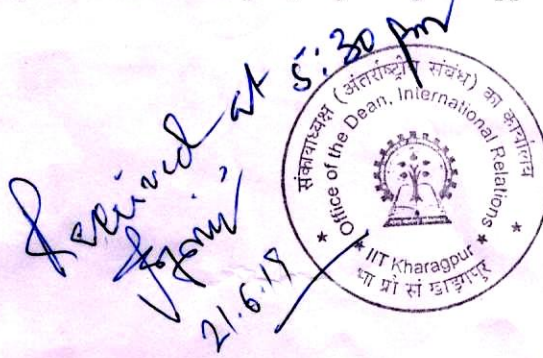 Received at 5:30 pm
21.6.19
संकायाध्यक्ष (अंतर्राष्ट्रीय संबंध) का कार्यालय
Office of the Dean, International Relations
★ IIT Kharagpur ★
भा प्रौ सं खड़गपुर